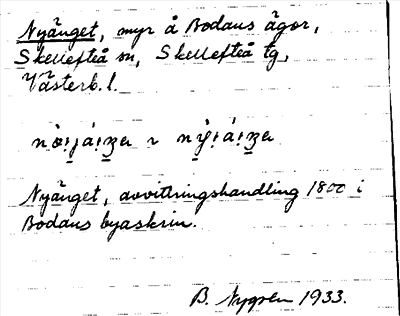 Nyänget, myr å Bodans ägor,
Skellefteå sn, Skellefteå tg,
Västerb. l.
Nyänget, avvittringshandling 1800 i
Bodans byaskrin.
B. Nygren 1933.